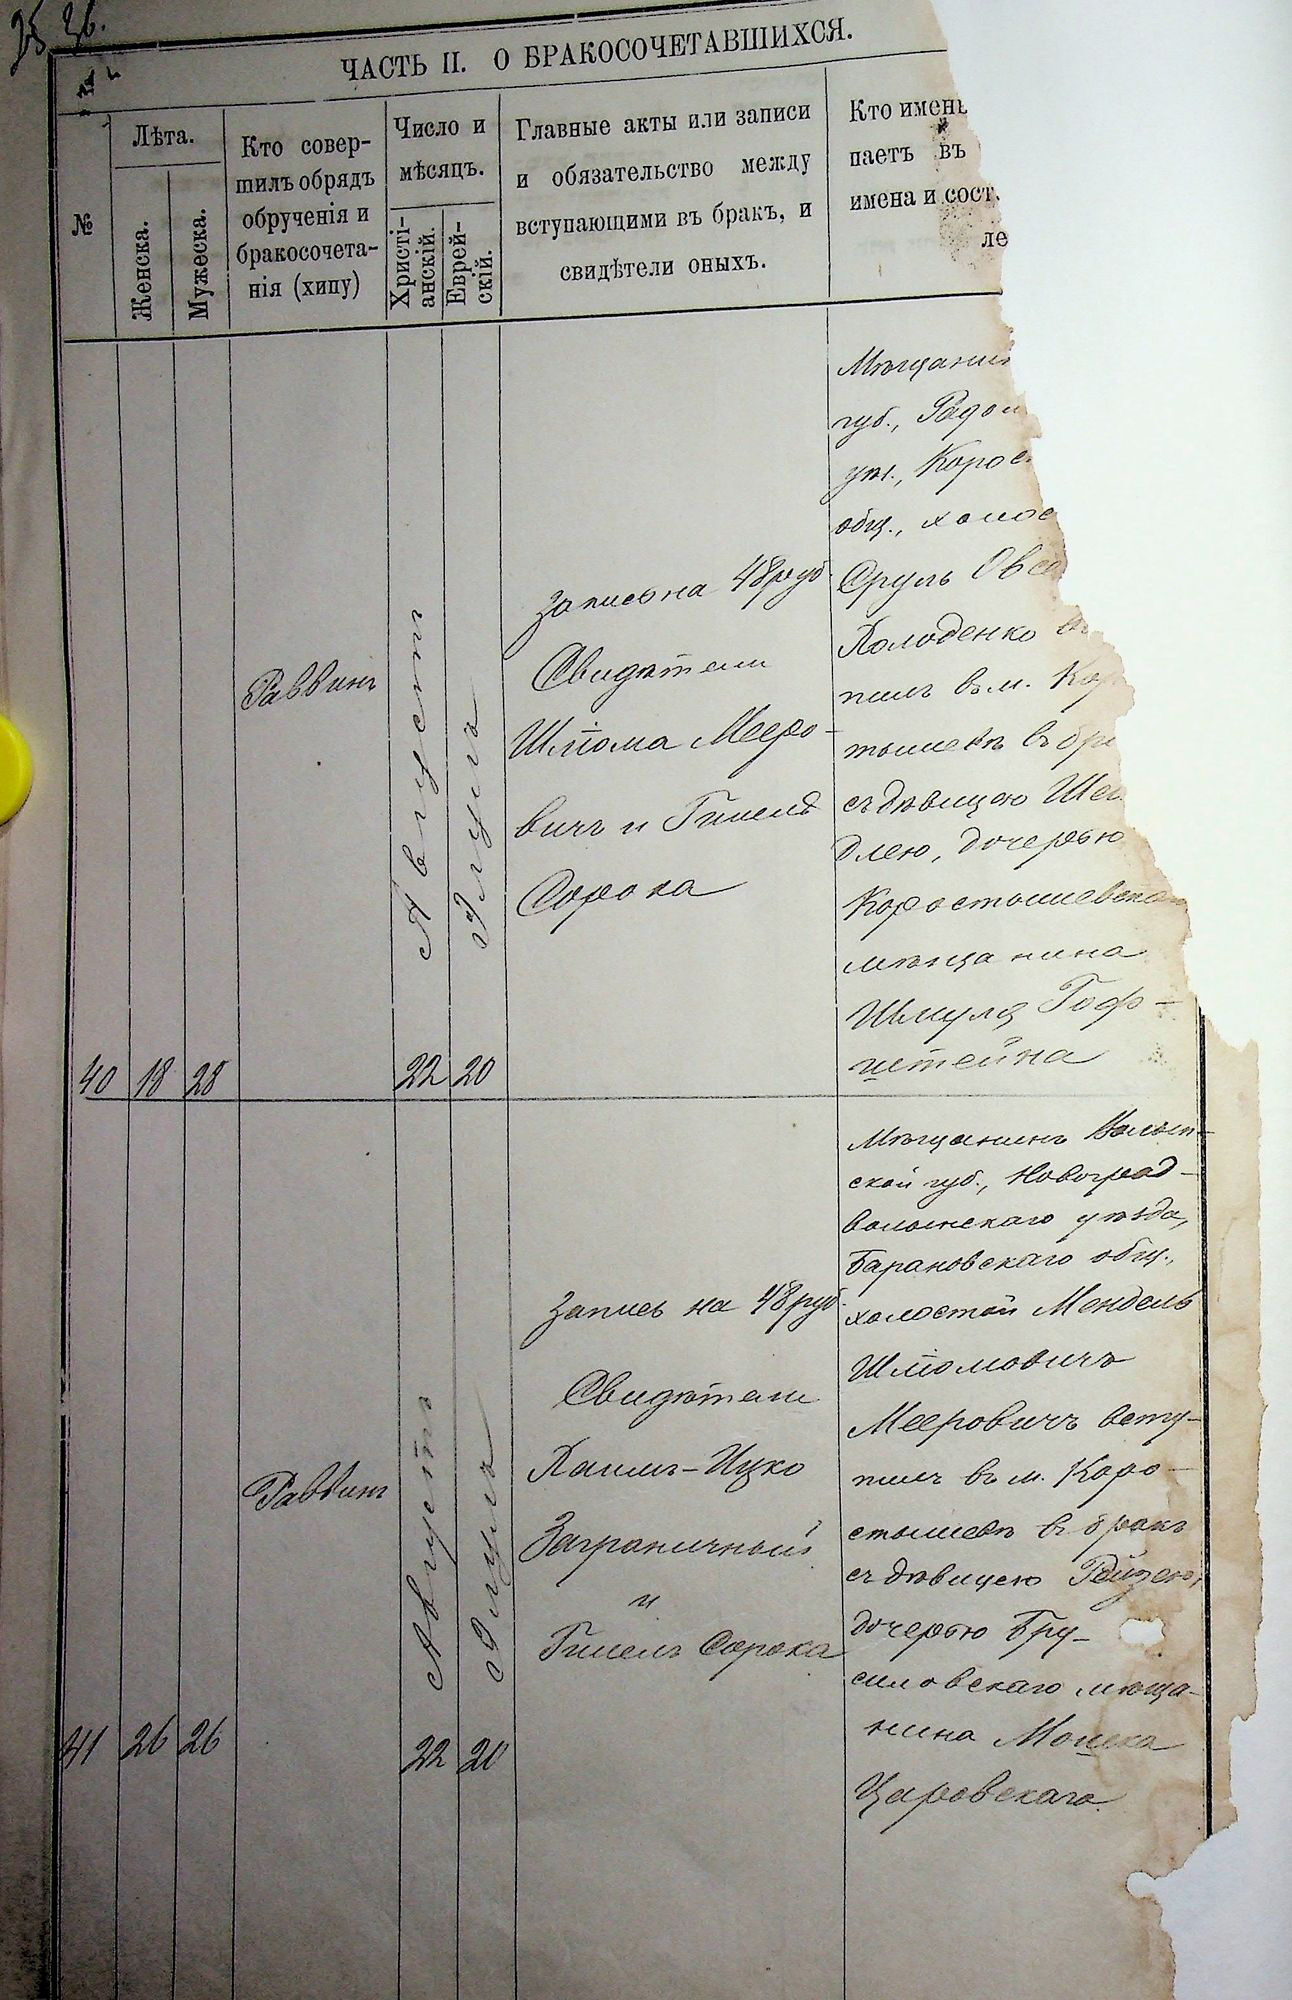 25 26.
ЧАСТЬ II. О БРАКОСОЧЕТАВШИХСЯ.
№
Лѣта.
Женска.
Мужеска.
Кто совер-
шилъ обрядъ
обрученія и
бракосочета-
нія (хипу)
Число и
мѣсяцъ.
Христі-
анскій.
Еврей-
скій.
Главные акты или записи
и обязательство между
вступающими въ бракъ, и
свидѣтели оныхъ.
Кто имен
паетъ въ
имена и сост.
ле
40
18
28
Раввинъ
Августъ
22
Элула
20
Запись на 48 руб.
Свидѣтели
Шліома Мееро-
вичъ и Гилель
Сорока
Мѣщанин
губ., Радом
уѣ., Корос
общ., холос
Сруль Овсе
Холоденко в
пилъ въ м. Кор
тышевѣ въ бр
съ дѣвицею Шей
длею, дочерью
Коростышевска
мѣщанина
Шмуля Гоф-
штейна
41
26
26
Раввинъ
Августъ
22
Элула
20
Запись на 48 руб.
Свидѣтели
Хаимъ-Ицко
Заграничный
и
Гилель Сорока
Мѣщанинъ Волын-
ской губ., Новоград-
волынскаго уѣзда,
Барановскаго общ.,
холостой Мендель
Шліомовичъ
Мееровичъ всту-
пилъ въ м. Коро-
стышевѣ въ бракъ
съ дѣвицею Рейзею,
дочерью Бру-
силовскаго мѣща-
нина Мошка
Царовскаго